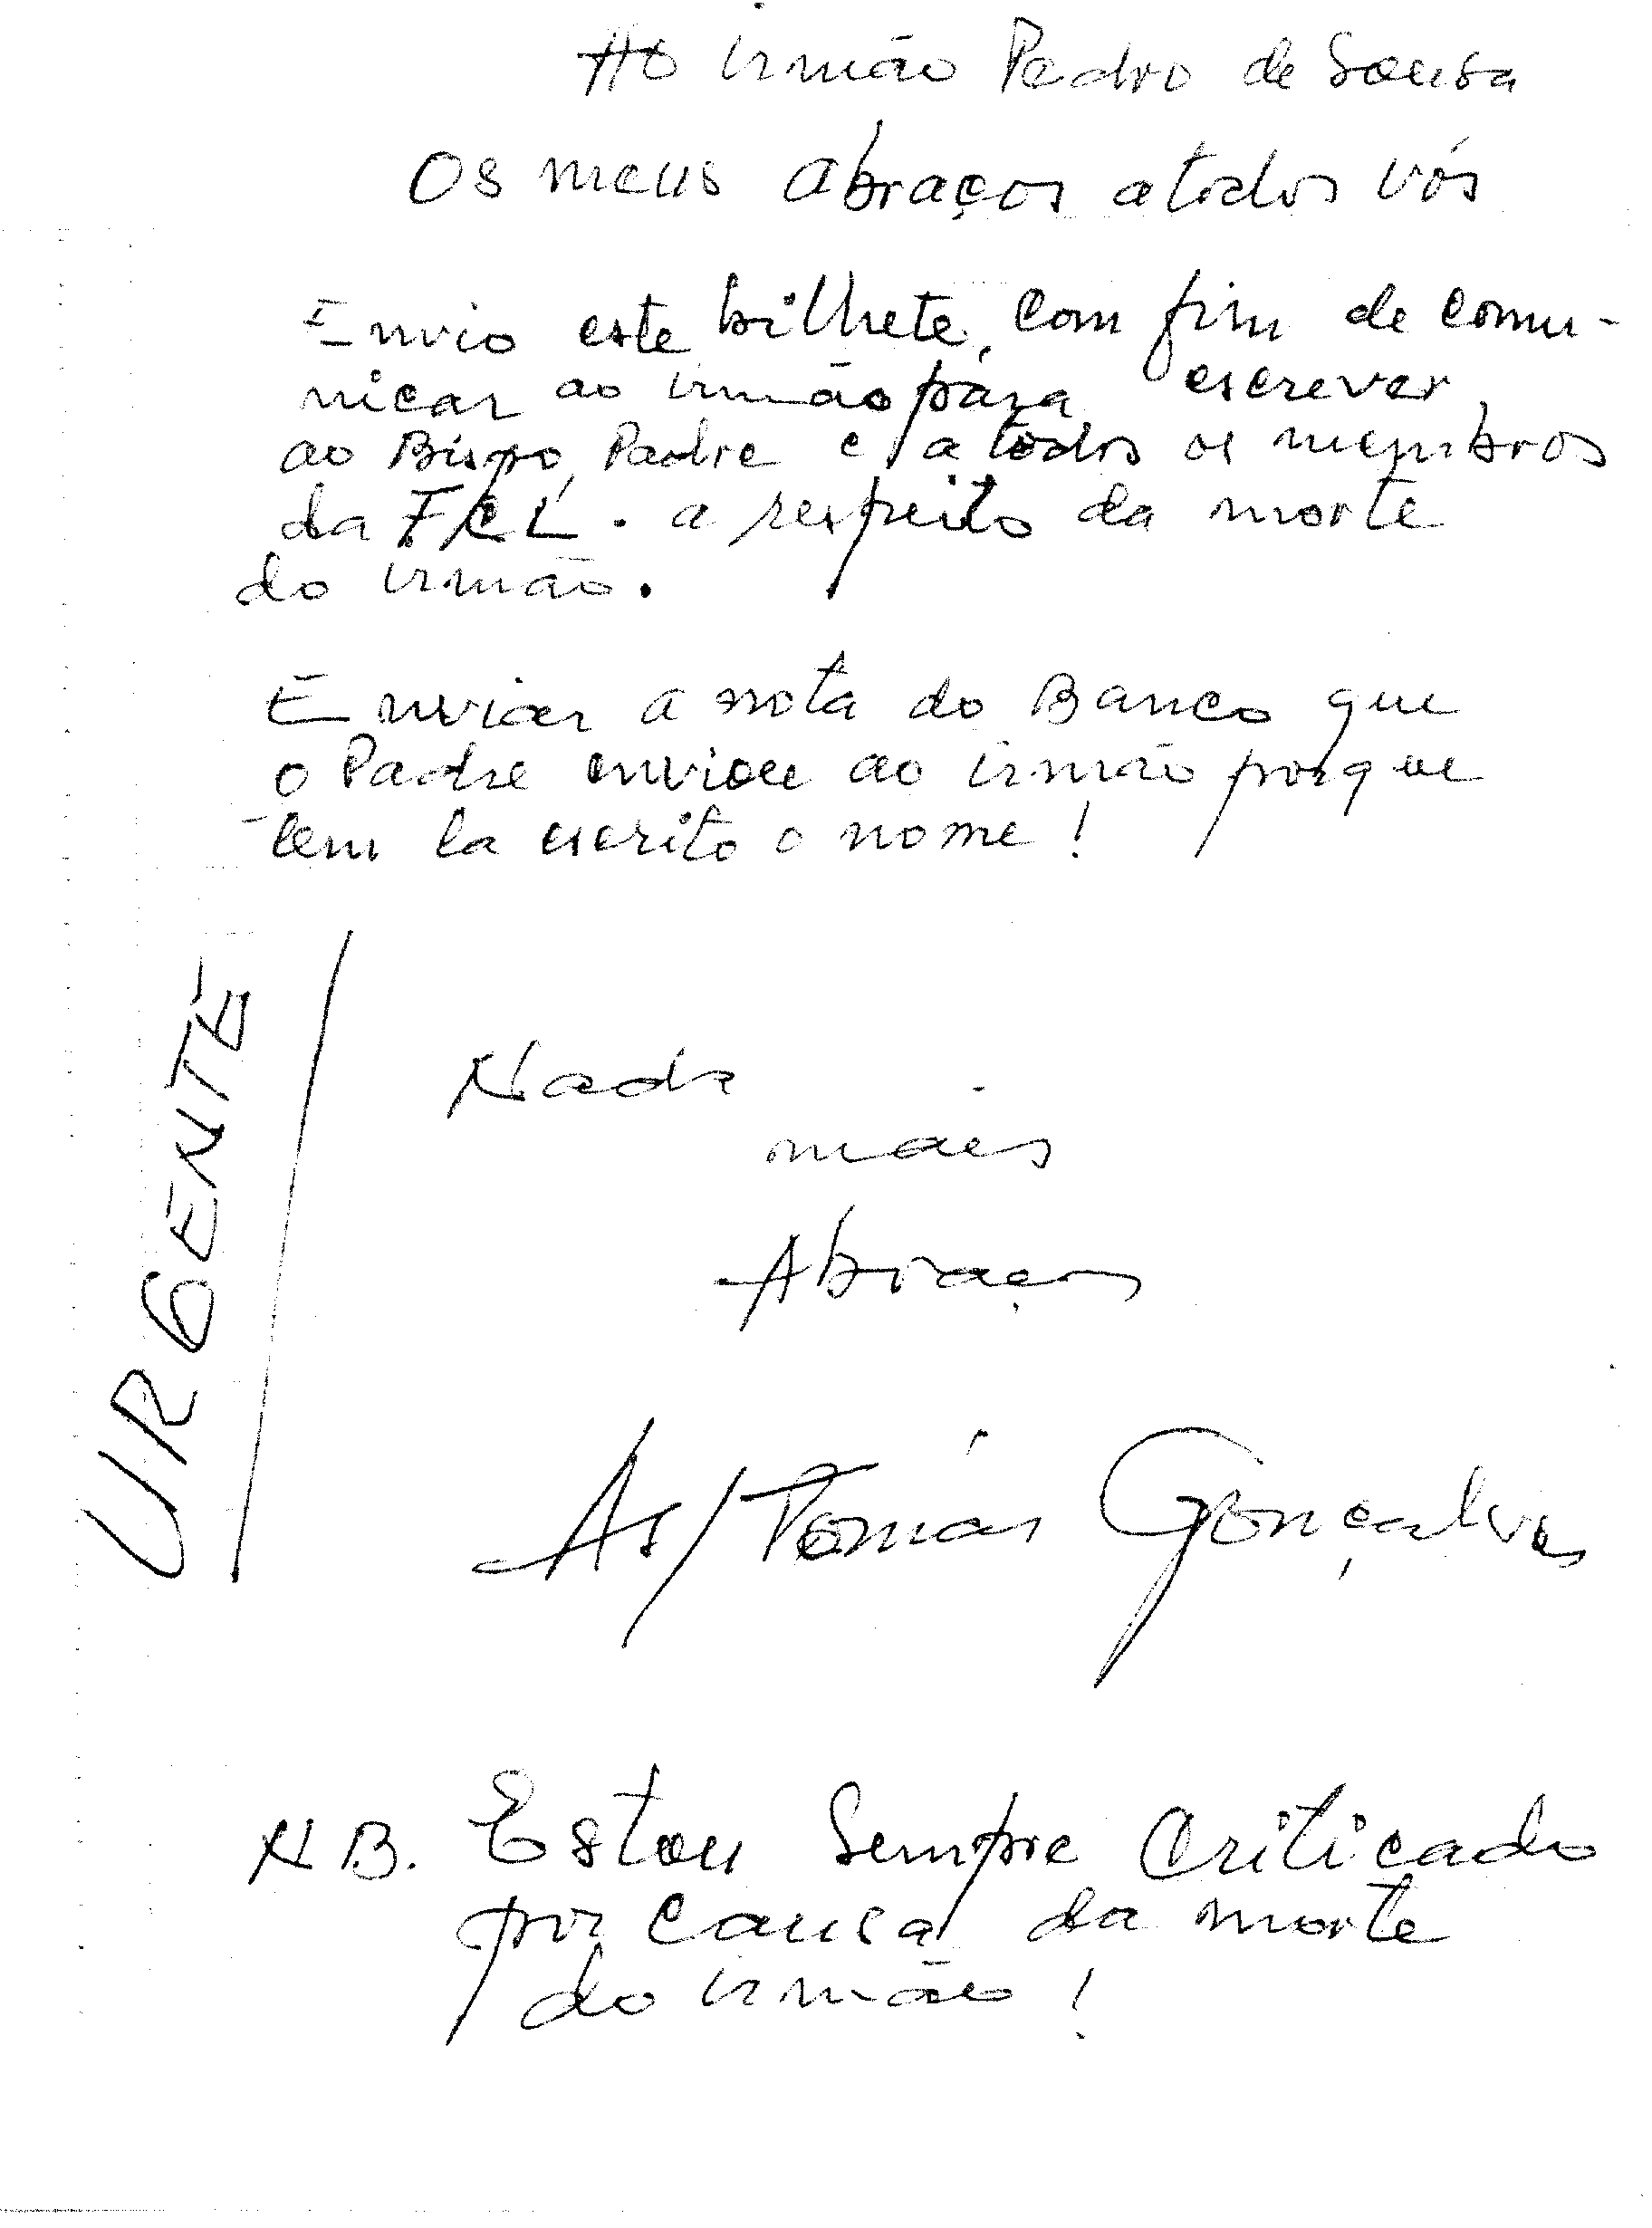 Ao irmão Pedro de Sousa
Os meus abraços a todos vós
Envio este bilhete, com fim de comu-
nicar ao irmão para escrever,
ao Bispo, Padre e a todos os membros
da FCL. a respeito da morte
do irmão.
Enviar a nota do Banco que
o Padre enviou ao irmão porque
tem la escrito o nome!
URGENTE
Nada
mais
Abraços
As/Tomás Gonçalves
N.B. Estou sempre criticado
por causa da morte
do irmão!